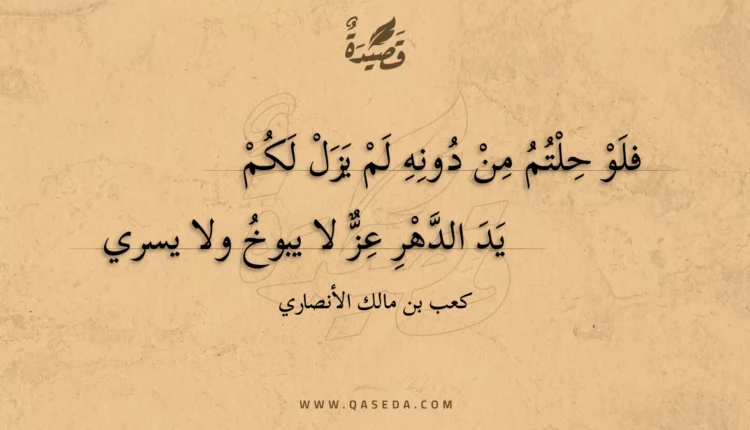 قَصِيْدَةٌ
فلَوْ حِلْتُمُ مِنْ دُونِهِ لَمْ يَزَلْ لَكُمْ
يَدَ الدَّهْرِ عِزٌّ لا يبوخُ ولا يسري
كعب بن مالك الأنصاري
WWW.QASEDA.COM